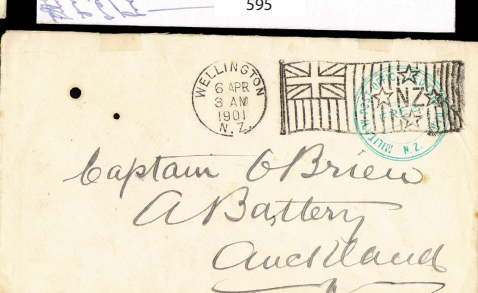 595
WELLINGTON
6 APR
3 AM
1901
N.Z.
NZ
N.Z.
Captain O'Brien
A Battery
Auckland